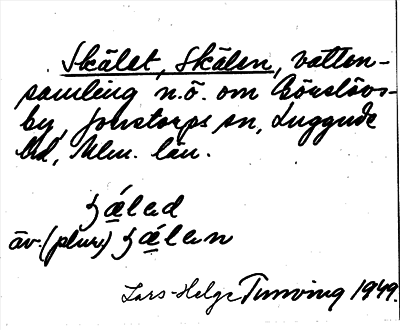 Skälet, Skälen, vatten-
samling n.ö. om Görslövs-
by, Jonstorps sn, Luggude
hd, Mlm. län.
ʒäled
äv. (plur.) ʒälen
Lars-Helge Tunving 1949.